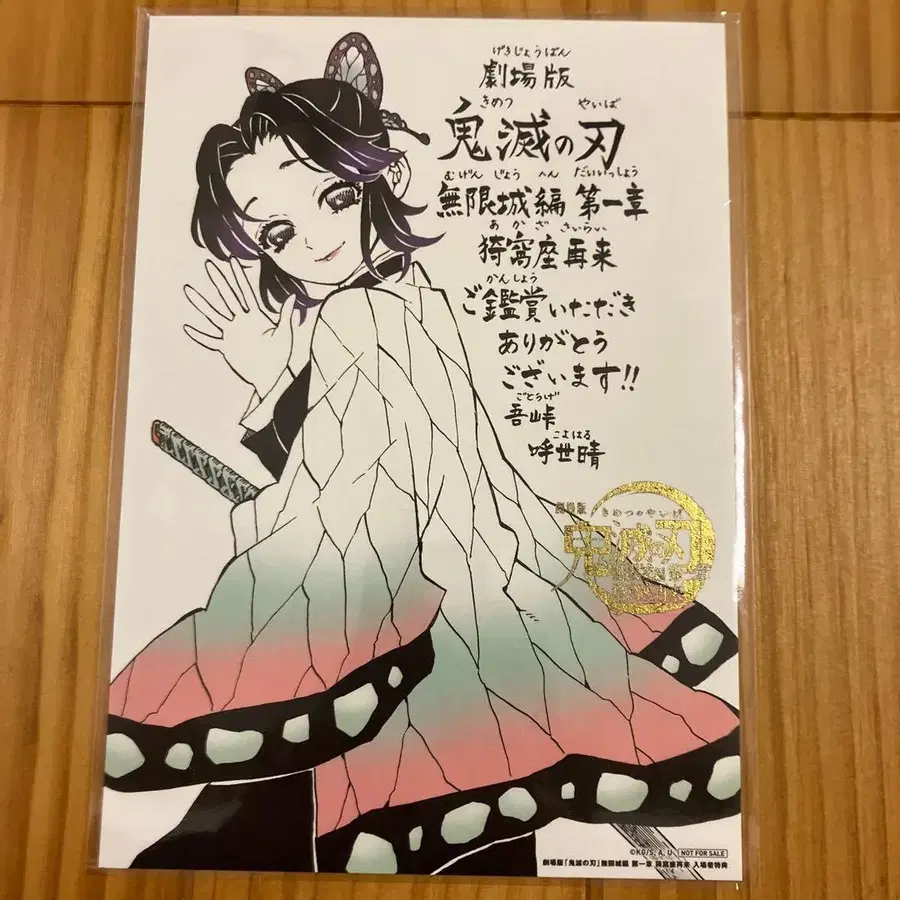 げきじょうばん
劇場版
きめつ やいば
鬼滅の刃
むげん じょう へん だいいっしょう
無限城編 第一章
あかざ さいらい
猗窩座再来
かんしょう
ご鑑賞いただき
ありがとう
ございます!!
ごとうげ
吾峠
こよはる
呼世晴
劇場版 きめつのやいば
鬼滅の刃
©KG/S, A, U. NOT FOR SALE
劇場版「鬼滅の刃」無限城編 第一章 猗窩座再来 入場者特典